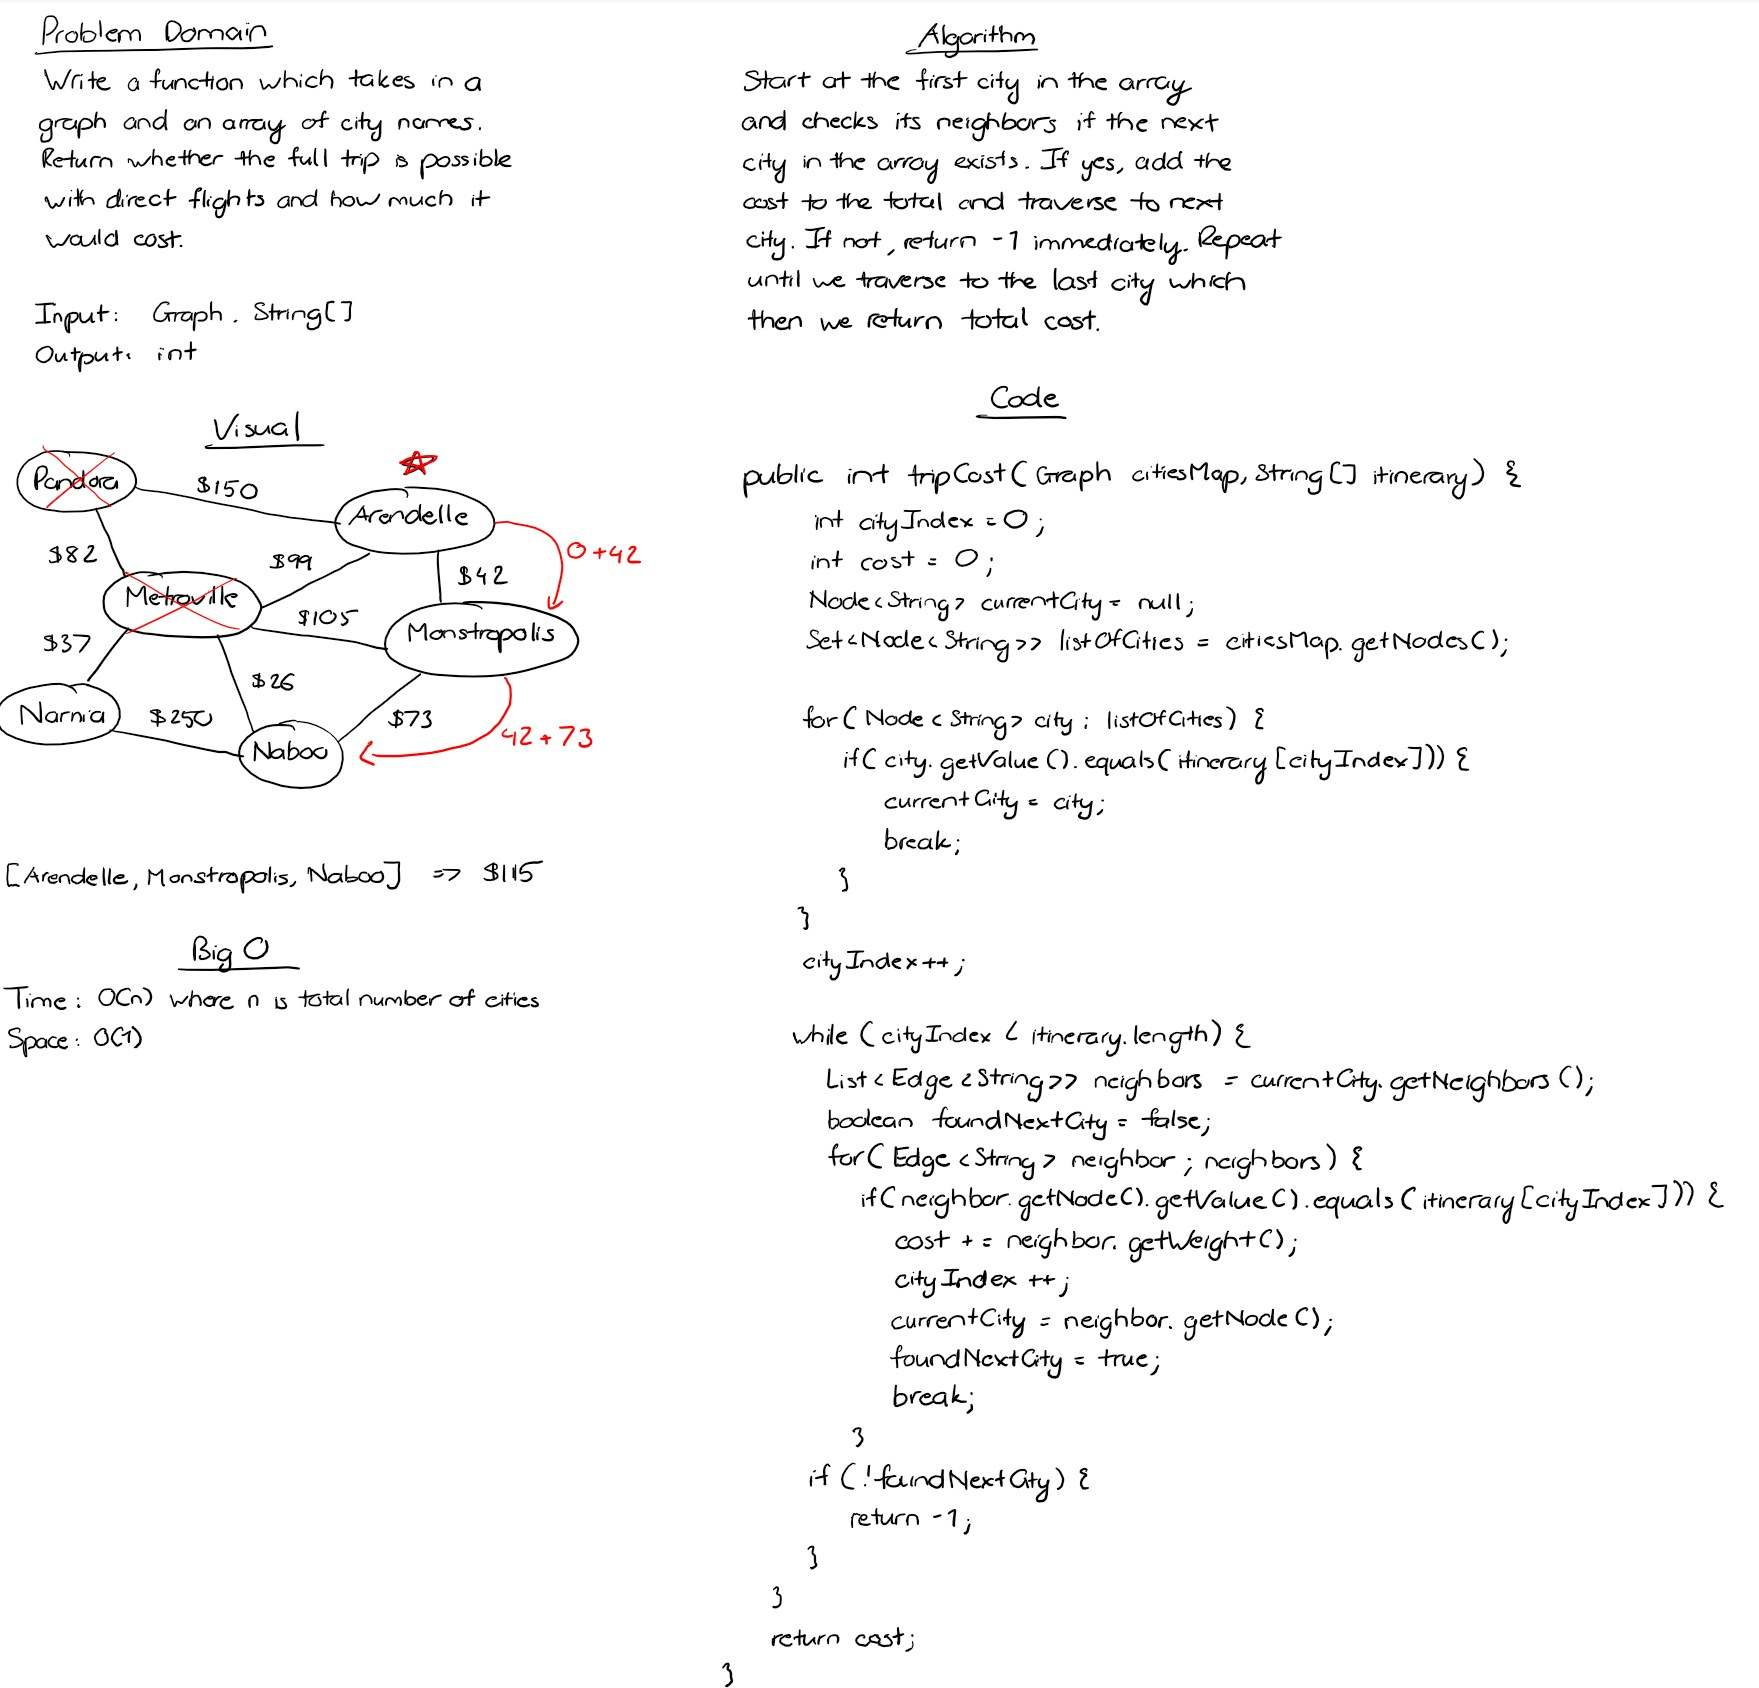 Problem Domain
Write a function which takes in a
graph and an array of city names.
Return whether the full trip is possible
with direct flights and how much it
would cost.
Input: Graph, String[]
Output: int
Visual
Pandora
$150
Arendelle
$82
$99
0+42
$42
Metroville
$105
Monstropolis
$37
$26
Narnia
$250
$73
42+73
Naboo
[Arendelle, Monstropolis, Naboo] => $115
Big O
Time: O(n) where n is total number of cities
Space: O(1)
Algorithm
Start at the first city in the array
and checks its neighbors if the next
city in the array exists. If yes, add the
cost to the total and traverse to next
city. If not, return -1 immediately. Repeat
until we traverse to the last city which
then we return total cost.
Code
public int tripCost(Graph citiesMap, String[] itinerary) {
int cityIndex = 0;
int cost = 0;
Node<String> currentCity = null;
Set<Node<String>> listOfCities = citiesMap.getNodes();
for(Node<String> city : listOfCities) {
if(city.getValue().equals(itinerary[cityIndex])) {
currentCity = city;
break;
}
}
cityIndex++;
while (cityIndex < itinerary.length) {
List<Edge<String>> neighbors = currentCity.getNeighbors();
boolean foundNextCity = false;
for(Edge<String> neighbor ; neighbors) {
if(neighbor.getNode().getValue().equals(itinerary[cityIndex])) {
cost += neighbor.getWeight();
cityIndex++;
currentCity = neighbor.getNode();
foundNextCity = true;
break;
}
if (!foundNextCity) {
return -1;
}
}
return cost;
}